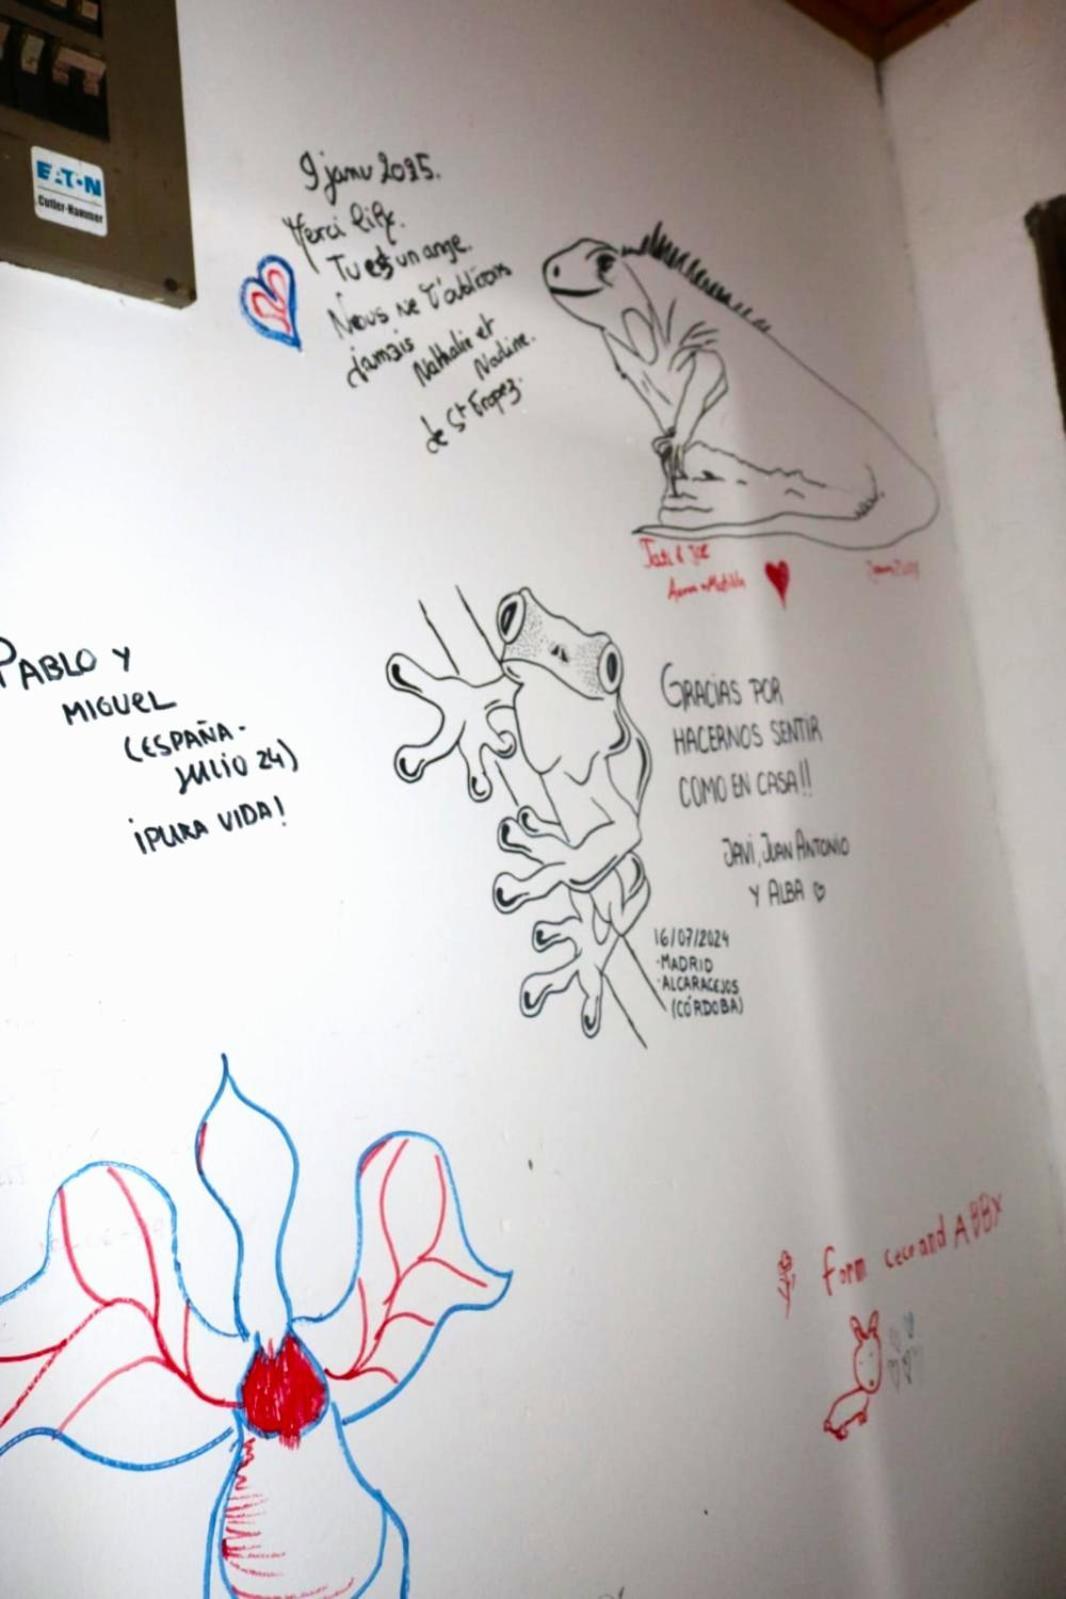 EATON
Cutler-Hammer
9 janv 2025.
Merci
Tu es un ange.
Nous ne t'oublirons
jamais
Nathalie et
Nadine.
de St Tropez.
PABLO Y
MIGUEL
(ESPAÑA-
JULIO 24)
¡PURA VIDA!
GRACIAS POR
HACERNOS SENTIR
COMO EN CASA!!
JAVI, JUAN ANTONIO
Y ALBA
16/07/2024
·MADRID
·ALCARACEJOS
(CÓRDOBA)
form cece and ABBY